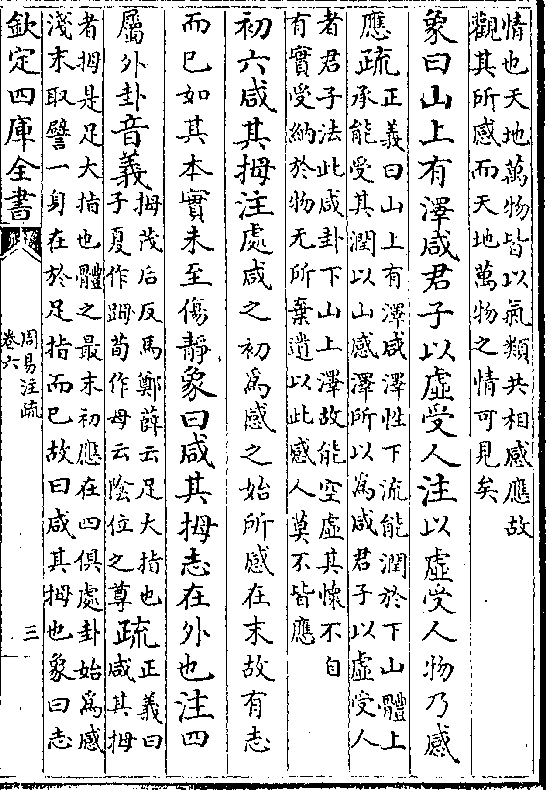 情也天地萬物皆以氣類共相感應故
觀其所感而天地萬物之情可見矣
象曰山上有澤咸君子以虛受人注以虛受人物乃感
應疏正義曰山上有澤咸澤性下流能潤於下山體上
承能受其潤以山感澤所以為咸君子以虛受人
者君子法此咸卦下山上澤故能空虛其懷不自
有實受納於物无所棄遺以此感人莫不皆應
初六咸其拇注處咸之初為感之始所感在末故有志
而已如其本實未至傷靜象曰咸其拇志在外也注四
屬外卦音義拇茂后反馬鄭薛云足大指也
子夏作𨈭荀作母云陰位之尊疏正義曰
咸其拇
者拇是足大指也體之最末初應在四俱處卦始為感
淺末取譬一身在於足指而已故曰咸其拇也象曰志
欽定四庫全書
周易注疏
卷六
三